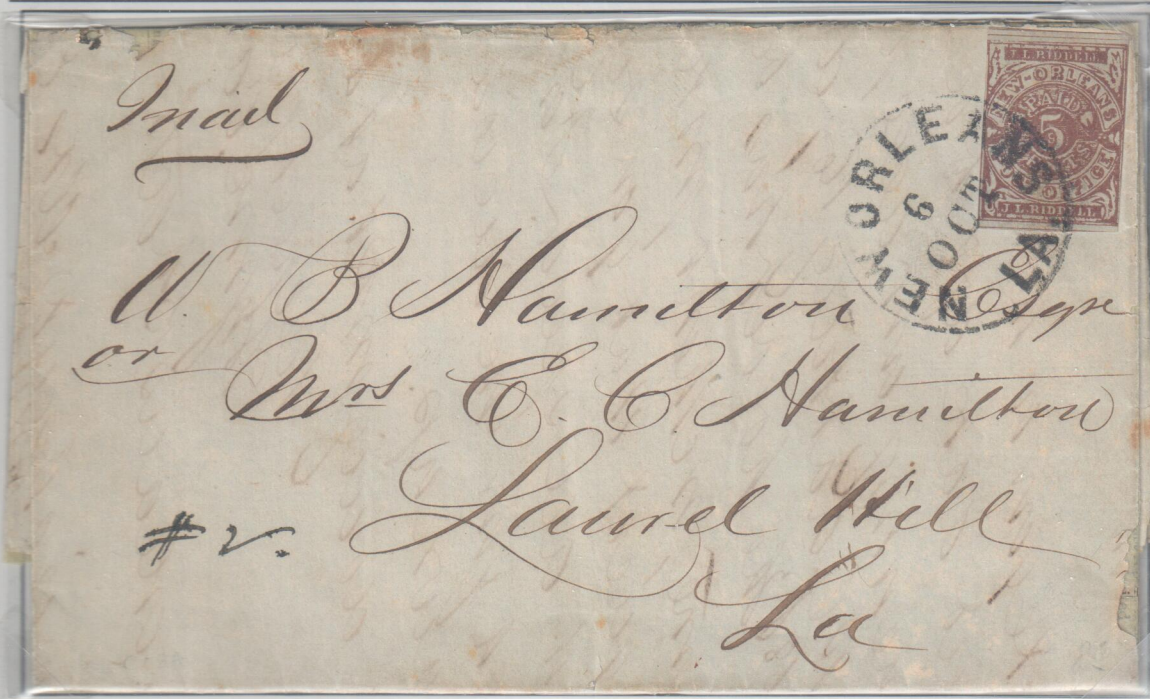 Mail
J. L. RIDDELL
NEW-ORLEANS
PAID
5
CENTS
POST OFFICE
J. L. RIDDELL
NEW ORLEANS LA
6
OCT
W. B Hamilton Esqre
or
Mrs E. C Hamilton
Laurel Hill
La
# 2.